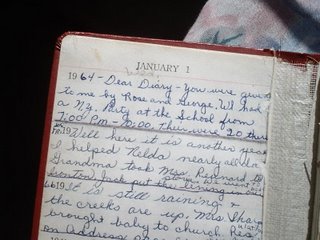 JANUARY 1
1964 - Dear Diary - You were given
to me by Rose and George. We had
a N.Y. Party at the School from
7:00 PM - 12:00. There were 20 there
19 Well here it is another year
I helped Nelda nearly all da
Grandma took Mrs.
out the lining in
66 19 It is still raining &
the creeks are up, Mrs
brought baby to church
on Address